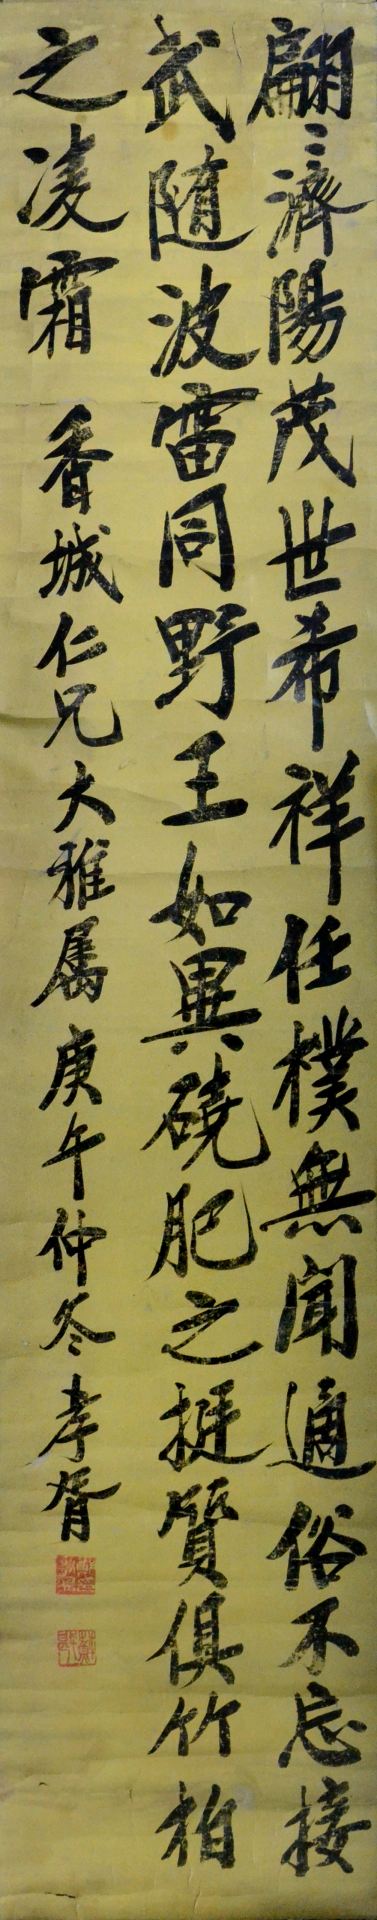 翩〻濟陽茂世希祥任樸無聞通俗不忘接
武隨波雷同野王如異磽肥之挺質俱竹柏
之凌霜　香城仁兄大雅属庚午仲冬孝胥